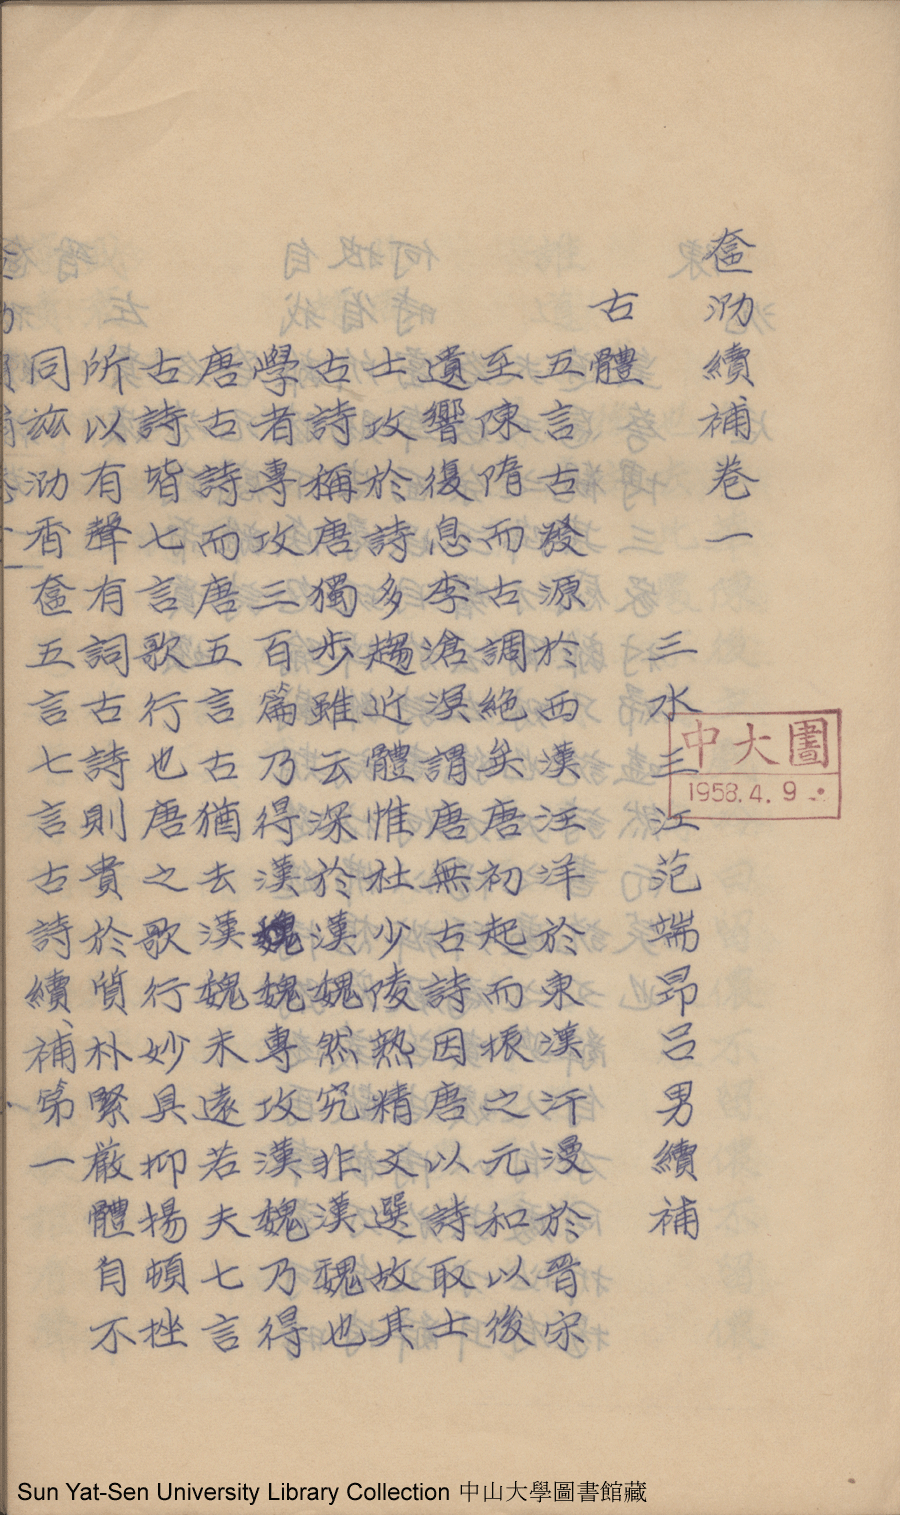 奩泐續補卷一
三水主江范端昂呂男續補
古體
五言古發源於西漢汪洋於東漢汗漫於晉宋
至陳隋而古調絕矣唐初起而振之元和以後
遺響復息李滄溟謂唐無古詩因唐以詩取士
士攻於詩多趨近體惟杜少陵熟精文選故其
古詩稱唐獨步雖云深於漢魏然究非漢魏也
學者專攻三百篇乃得漢魏魏專攻漢魏乃得
唐古詩而唐五言古猶去漢魏未遠若夫七言
古詩皆七言歌行也唐之歌行妙具抑揚頓挫
所以有聲有詞古詩則貴於質朴緊嚴體自不
同茲泐香奩五言七言古詩續補第一
中大圖
1958.4.9
Sun Yat-Sen University Library Collection 中山大學圖書館藏